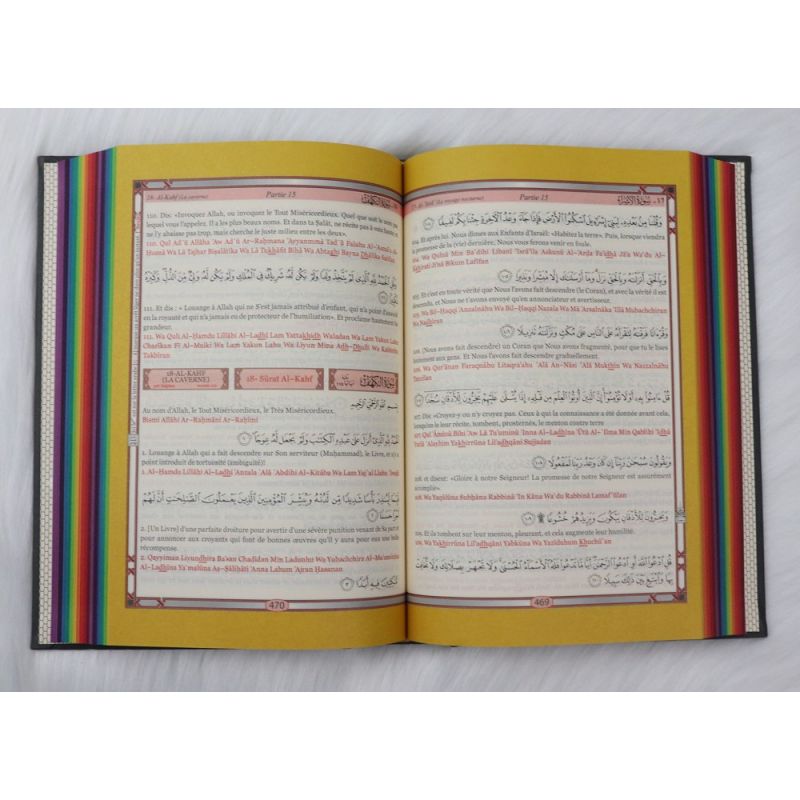 Partie 15
سُورَةُ الإِسْرَاءِ - ١٧
وَقُلْنَا مِنْ بَعْدِهِ لِبَنِي إِسْرَائِيلَ اسْكُنُوا الْأَرْضَ فَإِذَا جَاءَ وَعْدُ الْآخِرَةِ جِئْنَا بِكُمْ لَفِيفًا
104. Et après lui, Nous dîmes aux Enfants d'Israël: «Habitez la terre». Puis, lorsque viendra
la promesse de la (vie) dernière, Nous vous ferons venir en foule.
104. Wa Qulnâ Min Ba`dihi Libanî 'Isrâ'îla Askunû Al-'Arđa Fa'idhâ Jâ'a Wa`du Al-
'Âkhirati Ji'nâ Bikum Lafîfan
وَبِالْحَقِّ أَنْزَلْنَاهُ وَبِالْحَقِّ نَزَلَ وَمَا أَرْسَلْنَاكَ إِلَّا مُبَشِّرًا وَنَذِيرًا
105. Et c'est en toute vérité que Nous l'avons fait descendre (le Coran), et avec la vérité il est
descendu, et Nous ne t'avons envoyé qu'en annonciateur et avertisseur.
105. Wa Bil-Haqqi 'Anzalnâhu Wa Bil-Haqqi Nazala Wa Mâ 'Arsalnâka 'Illâ Mubachchiran
Wa Nadhîran
وَقُرْآنًا فَرَقْنَاهُ لِتَقْرَأَهُ عَلَى النَّاسِ عَلَى مُكْثٍ وَنَزَّلْنَاهُ تَنْزِيلًا
106. (Nous avons fait descendre) un Coran que Nous avons fragmenté, pour que tu le lises
lentement aux gens. Et Nous l'avons fait descendre graduellement.
106. Wa Qur'ânan Faraqnâhu Litaqra'ahu `Alá An-Nâsi `Alá Mukthin Wa Nazzalnâhu
Tanzîlan
قُلْ آمِنُوا بِهِ أَوْ لَا تُؤْمِنُوا إِنَّ الَّذِينَ أُوتُوا الْعِلْمَ مِنْ قَبْلِهِ إِذَا يُتْلَى عَلَيْهِمْ يَخِرُّونَ لِلْأَذْقَانِ سُجَّدًا
107. Dis: «Croyez-y ou n'y croyez pas. Ceux à qui la connaissance a été donnée avant cela,
lorsqu'on le leur récite, tombent, prosternés, le menton contre terre
107. Qul 'Âminû Bihi 'Aw Lâ Tu'uminû 'Inna Al-Ladhîna 'Ûtû Al-`Ilma Min Qablihi 'Idhâ
Yutlá `Alayhim Yakhirrûna Lil'adhqâni Sujjadan
وَيَقُولُونَ سُبْحَانَ رَبِّنَا إِنْ كَانَ وَعْدُ رَبِّنَا لَمَفْعُولًا
108. et disent: «Gloire à notre Seigneur! La promesse de notre Seigneur est assurément
accomplie».
108. Wa Yaqûlûna Subhâna Rabbinâ 'In Kâna Wa`du Rabbinâ Lamaf`ûlan
وَيَخِرُّونَ لِلْأَذْقَانِ يَبْكُونَ وَيَزِيدُهُمْ خُشُوعًا
109. Et ils tombent sur leur menton, pleurant, et cela augmente leur humilité.
109. Wa Yakhirrûna Lil'adhqâni Yabkûna Wa Yazîduhum Khuchû`an
قُلِ ادْعُوا اللَّهَ أَوِ ادْعُوا الرَّحْمَنَ أَيًّا مَا تَدْعُوا فَلَهُ الْأَسْمَاءُ الْحُسْنَى وَلَا تَجْهَرْ بِصَلَاتِكَ وَلَا تُخَافِتْ
بِهَا وَابْتَغِ بَيْنَ ذَلِكَ سَبِيلًا
469
18- Al-Kahf (La caverne)
Partie 15
سُورَةُ الكَهْفِ
110. Dis: «Invoquez Allah, ou invoquez le Tout Miséricordieux. Quel que soit le nom par
lequel vous l'appelez, Il a les plus beaux noms. Et dans ta Salât, ne récite pas à voix haute et
ne l'y abaisse pas trop, mais cherche le juste milieu entre les deux».
110. Qul Ad`û Allâha 'Aw Ad`û Ar-Rahmana 'Ayyanmmâ Tad`û Falahu Al-'Asmâ'u Al-
Husná Wa Lâ Tajhar Bişalâtika Wa Lâ Tukhâfit Bihâ Wa Abtaghi Bayna Dhâlika Sabîlan
وَقُلِ الْحَمْدُ لِلَّهِ الَّذِي لَمْ يَتَّخِذْ وَلَدًا وَلَمْ يَكُنْ لَهُ شَرِيكٌ فِي الْمُلْكِ وَلَمْ يَكُنْ لَهُ وَلِيٌّ مِنَ الذُّلِّ وَكَبِّرْهُ
تَكْبِيرًا
111. Et dis : « Louange à Allah qui ne S'est jamais attribué d'enfant, qui n'a point d'associé
en la royauté et qui n'a jamais eu de protecteur de l'humiliation». Et proclame hautement Sa
grandeur.
111. Wa Quli Al-Hamdu Lillâhi Al-Ladhî Lam Yattakhidh Waladan Wa Lam Yakun Lahu
Charîkun Fî Al-Mulki Wa Lam Yakun Lahu Wa Lîyun Mina Adh-Dhulli Wa Kabbirhu
Takbîran
18-AL-KAHF
(LA CAVERNE)
18- Sûrat Al-Kahf
سُورَةُ الكَهْفِ
Au nom d'Allah, le Tout Miséricordieux, le Très Miséricordieux.
بِسْمِ اللَّهِ الرَّحْمَنِ الرَّحِيمِ
Bismi Allâhi Ar-Rahmâni Ar-Rahîmi
الْحَمْدُ لِلَّهِ الَّذِي أَنْزَلَ عَلَى عَبْدِهِ الْكِتَابَ وَلَمْ يَجْعَلْ لَهُ عِوَجًا
1. Louange à Allah qui a fait descendre sur Son serviteur (Muhammad), le Livre, et n'y a
point introduit de tortuosité (ambiguïté)!
1. Al-Hamdu Lillâhi Al-Ladhî 'Anzala `Alá `Abdihi Al-Kitâba Wa Lam Yaj`al Llahu `Iwajâ
قَيِّمًا لِيُنْذِرَ بَأْسًا شَدِيدًا مِنْ لَدُنْهُ وَيُبَشِّرَ الْمُؤْمِنِينَ الَّذِينَ يَعْمَلُونَ الصَّالِحَاتِ أَنَّ لَهُمْ
أَجْرًا حَسَنًا
2. [Un Livre] d'une parfaite droiture pour avertir d'une sévère punition venant de Sa part et
pour annoncer aux croyants qui font de bonnes œuvres qu'il y aura pour eux une belle
récompense.
2. Qayyiman Liyundhira Ba'san Chadîdan Min Ladunhu Wa Yubachchira Al-Mu'uminîna
Al-Ladhîna Ya`malûna Aş-Şâliĥâti 'Anna Lahum 'Ajran Hasanan
مَاكِثِينَ فِيهِ أَبَدًا
470